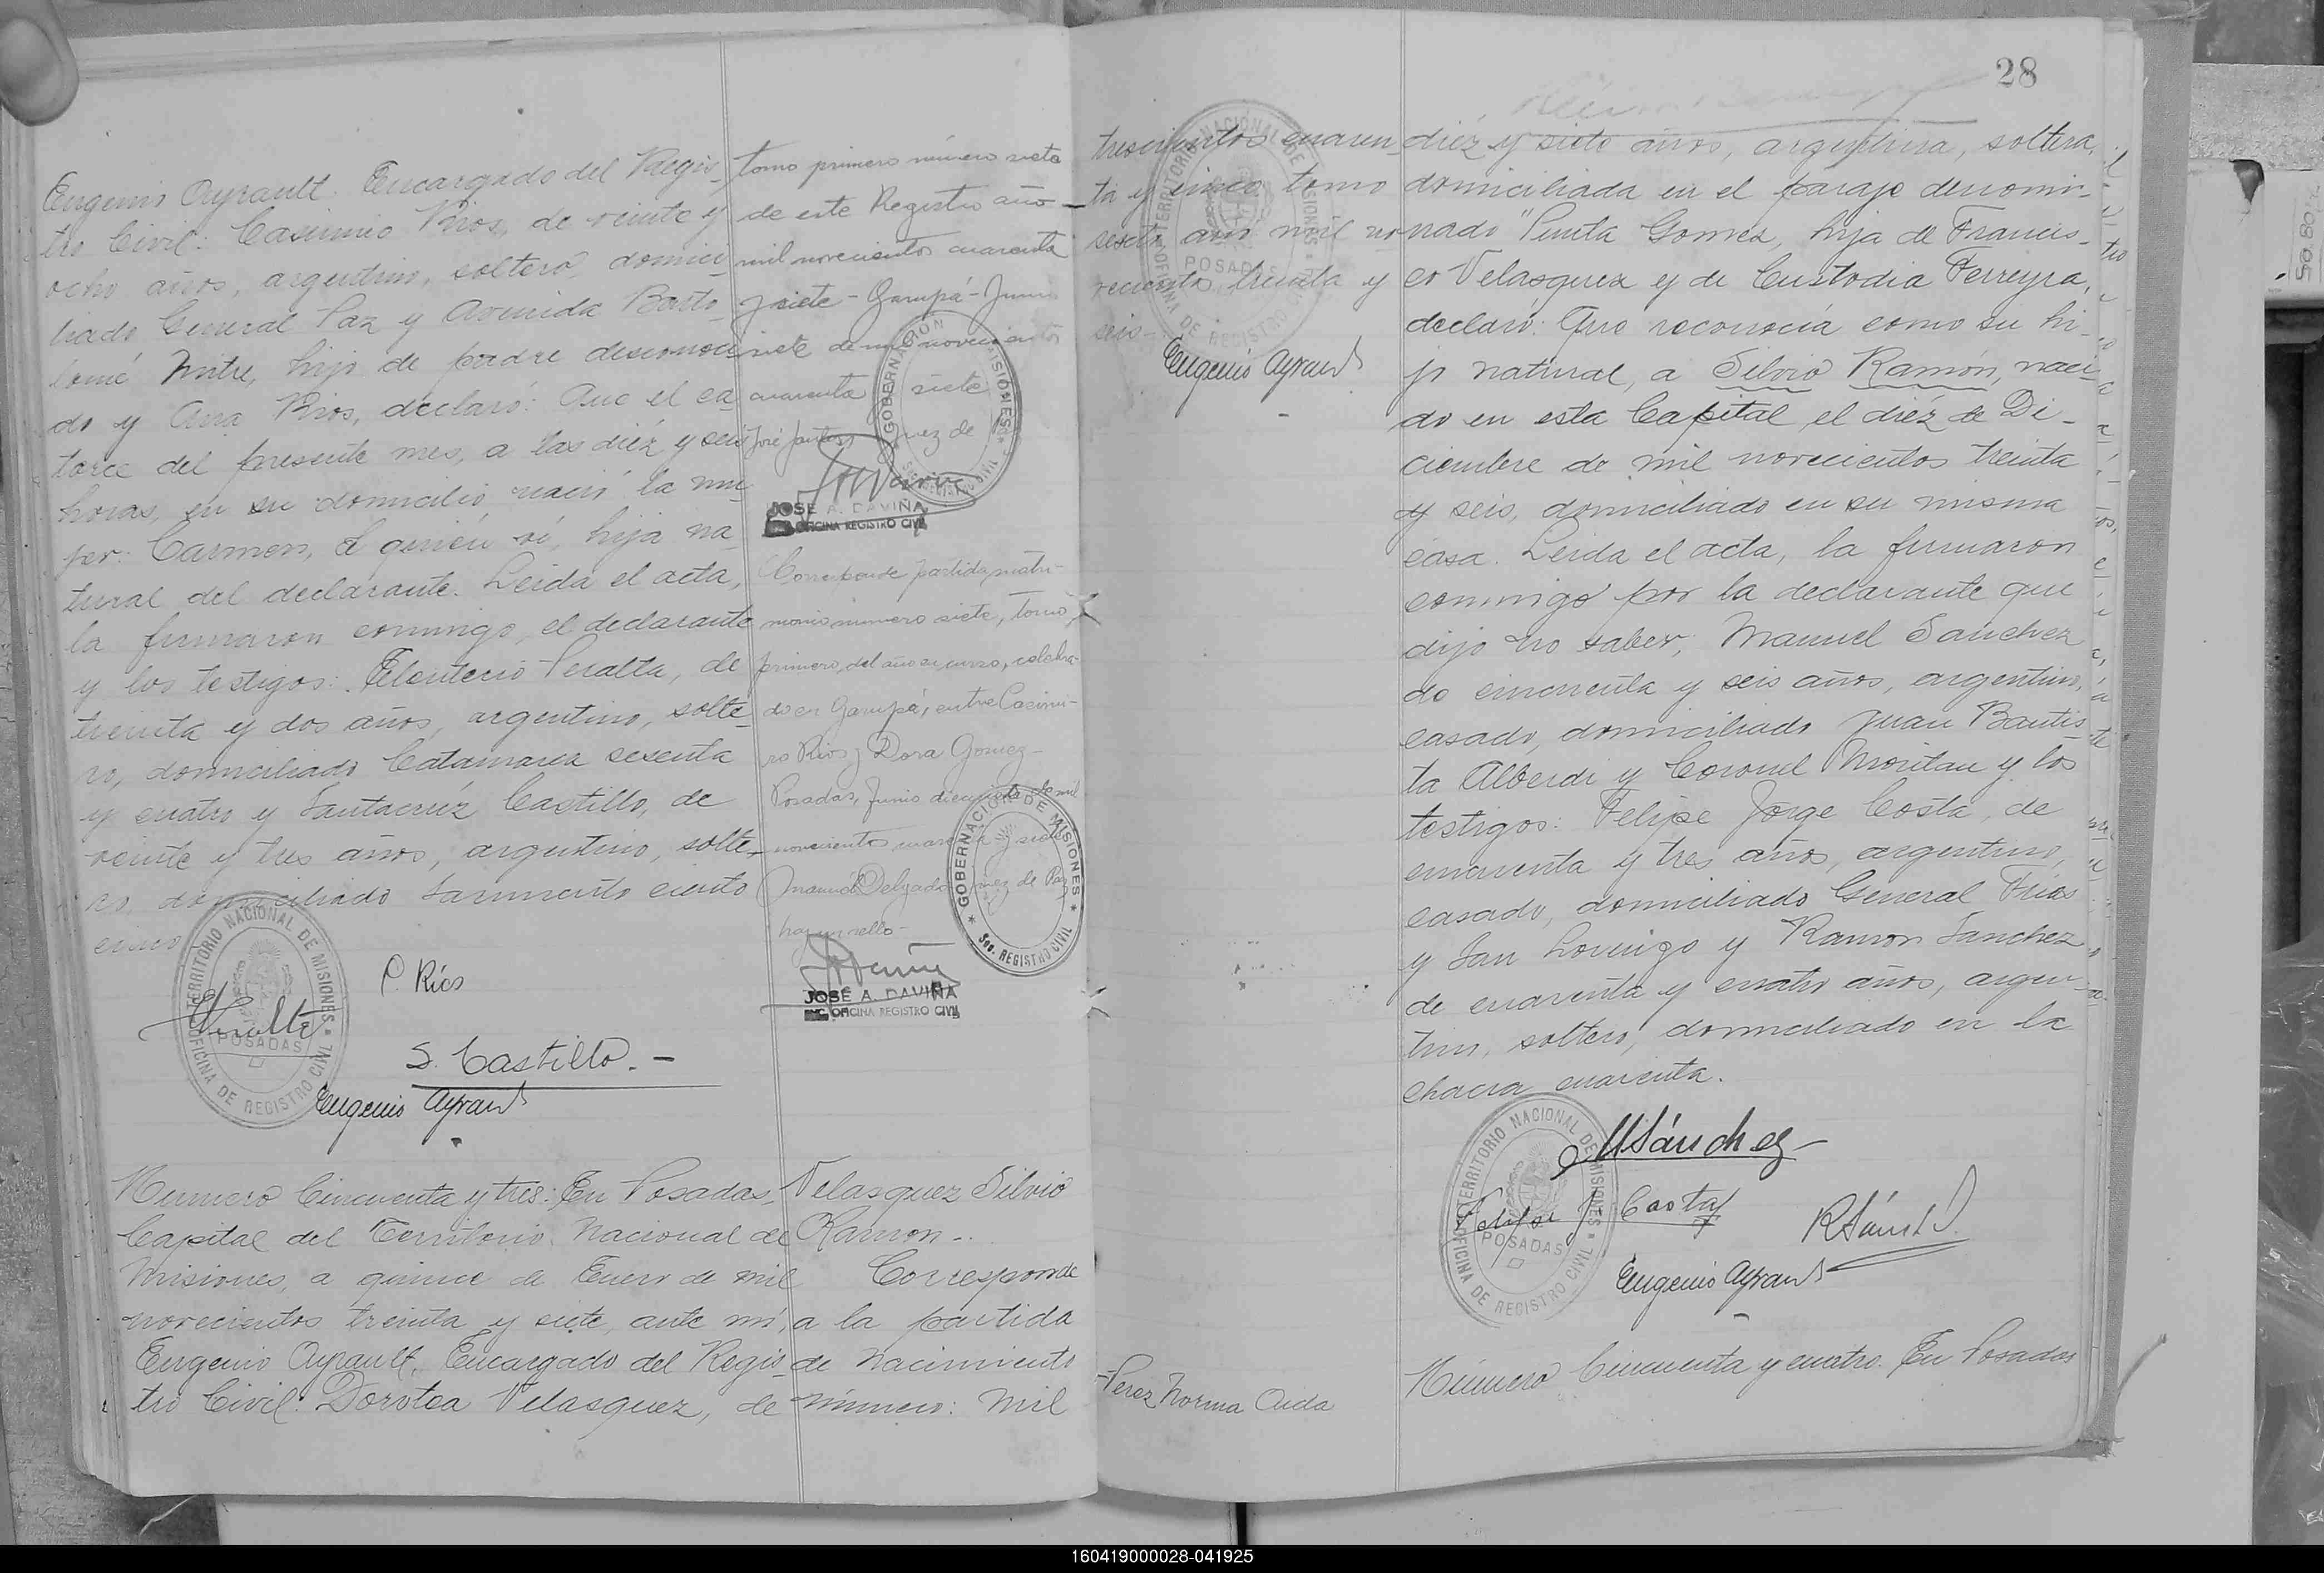 Eugenio Ayrault. Encargado del Regis-
tro Civil: Casimiro Rios, de veinte y
ocho años, argentino, soltero, domici-
liado General Paz y Avenida Barto-
lomé Mitre, hijo de padre desconoci-
do y Ana Rios, declaró: Que el ca-
torce del presente mes, a las diéz y seis
horas, en su domicilio nació la mu-
jer: Carmen, a quién ví, hija na-
tural del declarante. Leida el acta,
la firmaron conmigo, el declarante
y los testigos: Eleuterio Peralta, de
treinta y dos años, argentino, solte-
ro, domiciliado Catamarca sesenta
y cuatro y Santacruz Castillo, de
veinte y tres años, argentino, solte-
ro, domiciliado Sarmiento ciento
cinco
C. Rios
S. Castillo.-
Eugenio Ayrault
TERRITORIO NACIONAL DE MISIONES
POSADAS
OFICINA DE REGISTRO CIVIL
tomo primero número siete
de este Registro año
mil novecientos cuarenta
y siete - Garupá - Junio
siete de mil novecientos
cuarenta siete
Juez de
GOBERNACION MISIONES
JOSE A. DAVIÑA
OFICINA REGISTRO CIVIL
Corresponde partida matri-
monio número siete, tomo
primero, del año en curso, celebra-
do en Garupá, entre Casimi-
ro Rios y Dora Gomez -
Posadas, Junio de mil
novecientos cuarenta y siete
Manuel Delgado juez de Paz
hay un sello -
GOBERNACION DE MISIONES
Sec. REGISTRO CIVIL
JOSÉ A. DAVIÑA
ENC. OFICINA REGISTRO CIVIL
Numero Cincuenta y tres: En Posadas,
Capital del Territorio Nacional de
Misiones, a quince de Enero de mil
novecientos treinta y siete, ante mí,
Eugenio Ayrault, Encargado del Regis-
tro Civil: Dorotea Velasquez, de
Velasquez Silvio
Ramon -..
Corresponde
a la partida
de nacimiento
número: mil
28
trescientos cuaren-
ta y cinco tomo
sesto año mil no
vecientos treinta y
seis -
Eugenio Ayrault
TERRITORIO NACIONAL DE MISIONES
POSADAS
OFICINA DE REGISTRO CIVIL
diéz y siete años, argentina, soltera,
domiciliada en el paraje denomi-
nado "Punta Gomez, hija de Francis-
co Velasquez y de Custodia Ferreyra,
declaró: Que reconocía como su hi-
jo natural, a Silvio Ramón, naci-
do en esta Capital el diéz de Di-
ciembre de mil novecientos treinta
y seis, domiciliado en su misma
casa. Leida el acta, la firmaron
conmigo por la declarante que
dijo no saber, Manuel Sanchez
de cincuenta y seis años, argentino,
casado, domiciliado Juan Bautis-
ta Alberdi y Coronel Moritan y los
testigos: Felipe Jorge Costa, de
cincuenta y tres años, argentino,
casado, domiciliado General Frias
y San Lorenzo y Ramon Sanchez
de cuarenta y cuatro años, argen-
tino, soltero, domiciliado en la
chacra cuarenta.
MSánchez-
Felipe J Costa
RSánch
Eugenio Ayrault
TERRITORIO NACIONAL DE MISIONES
POSADAS
OFICINA DE REGISTRO CIVIL
Perez Norma Aida
Número Cincuenta y cuatro. En Posadas
160419000028-041925